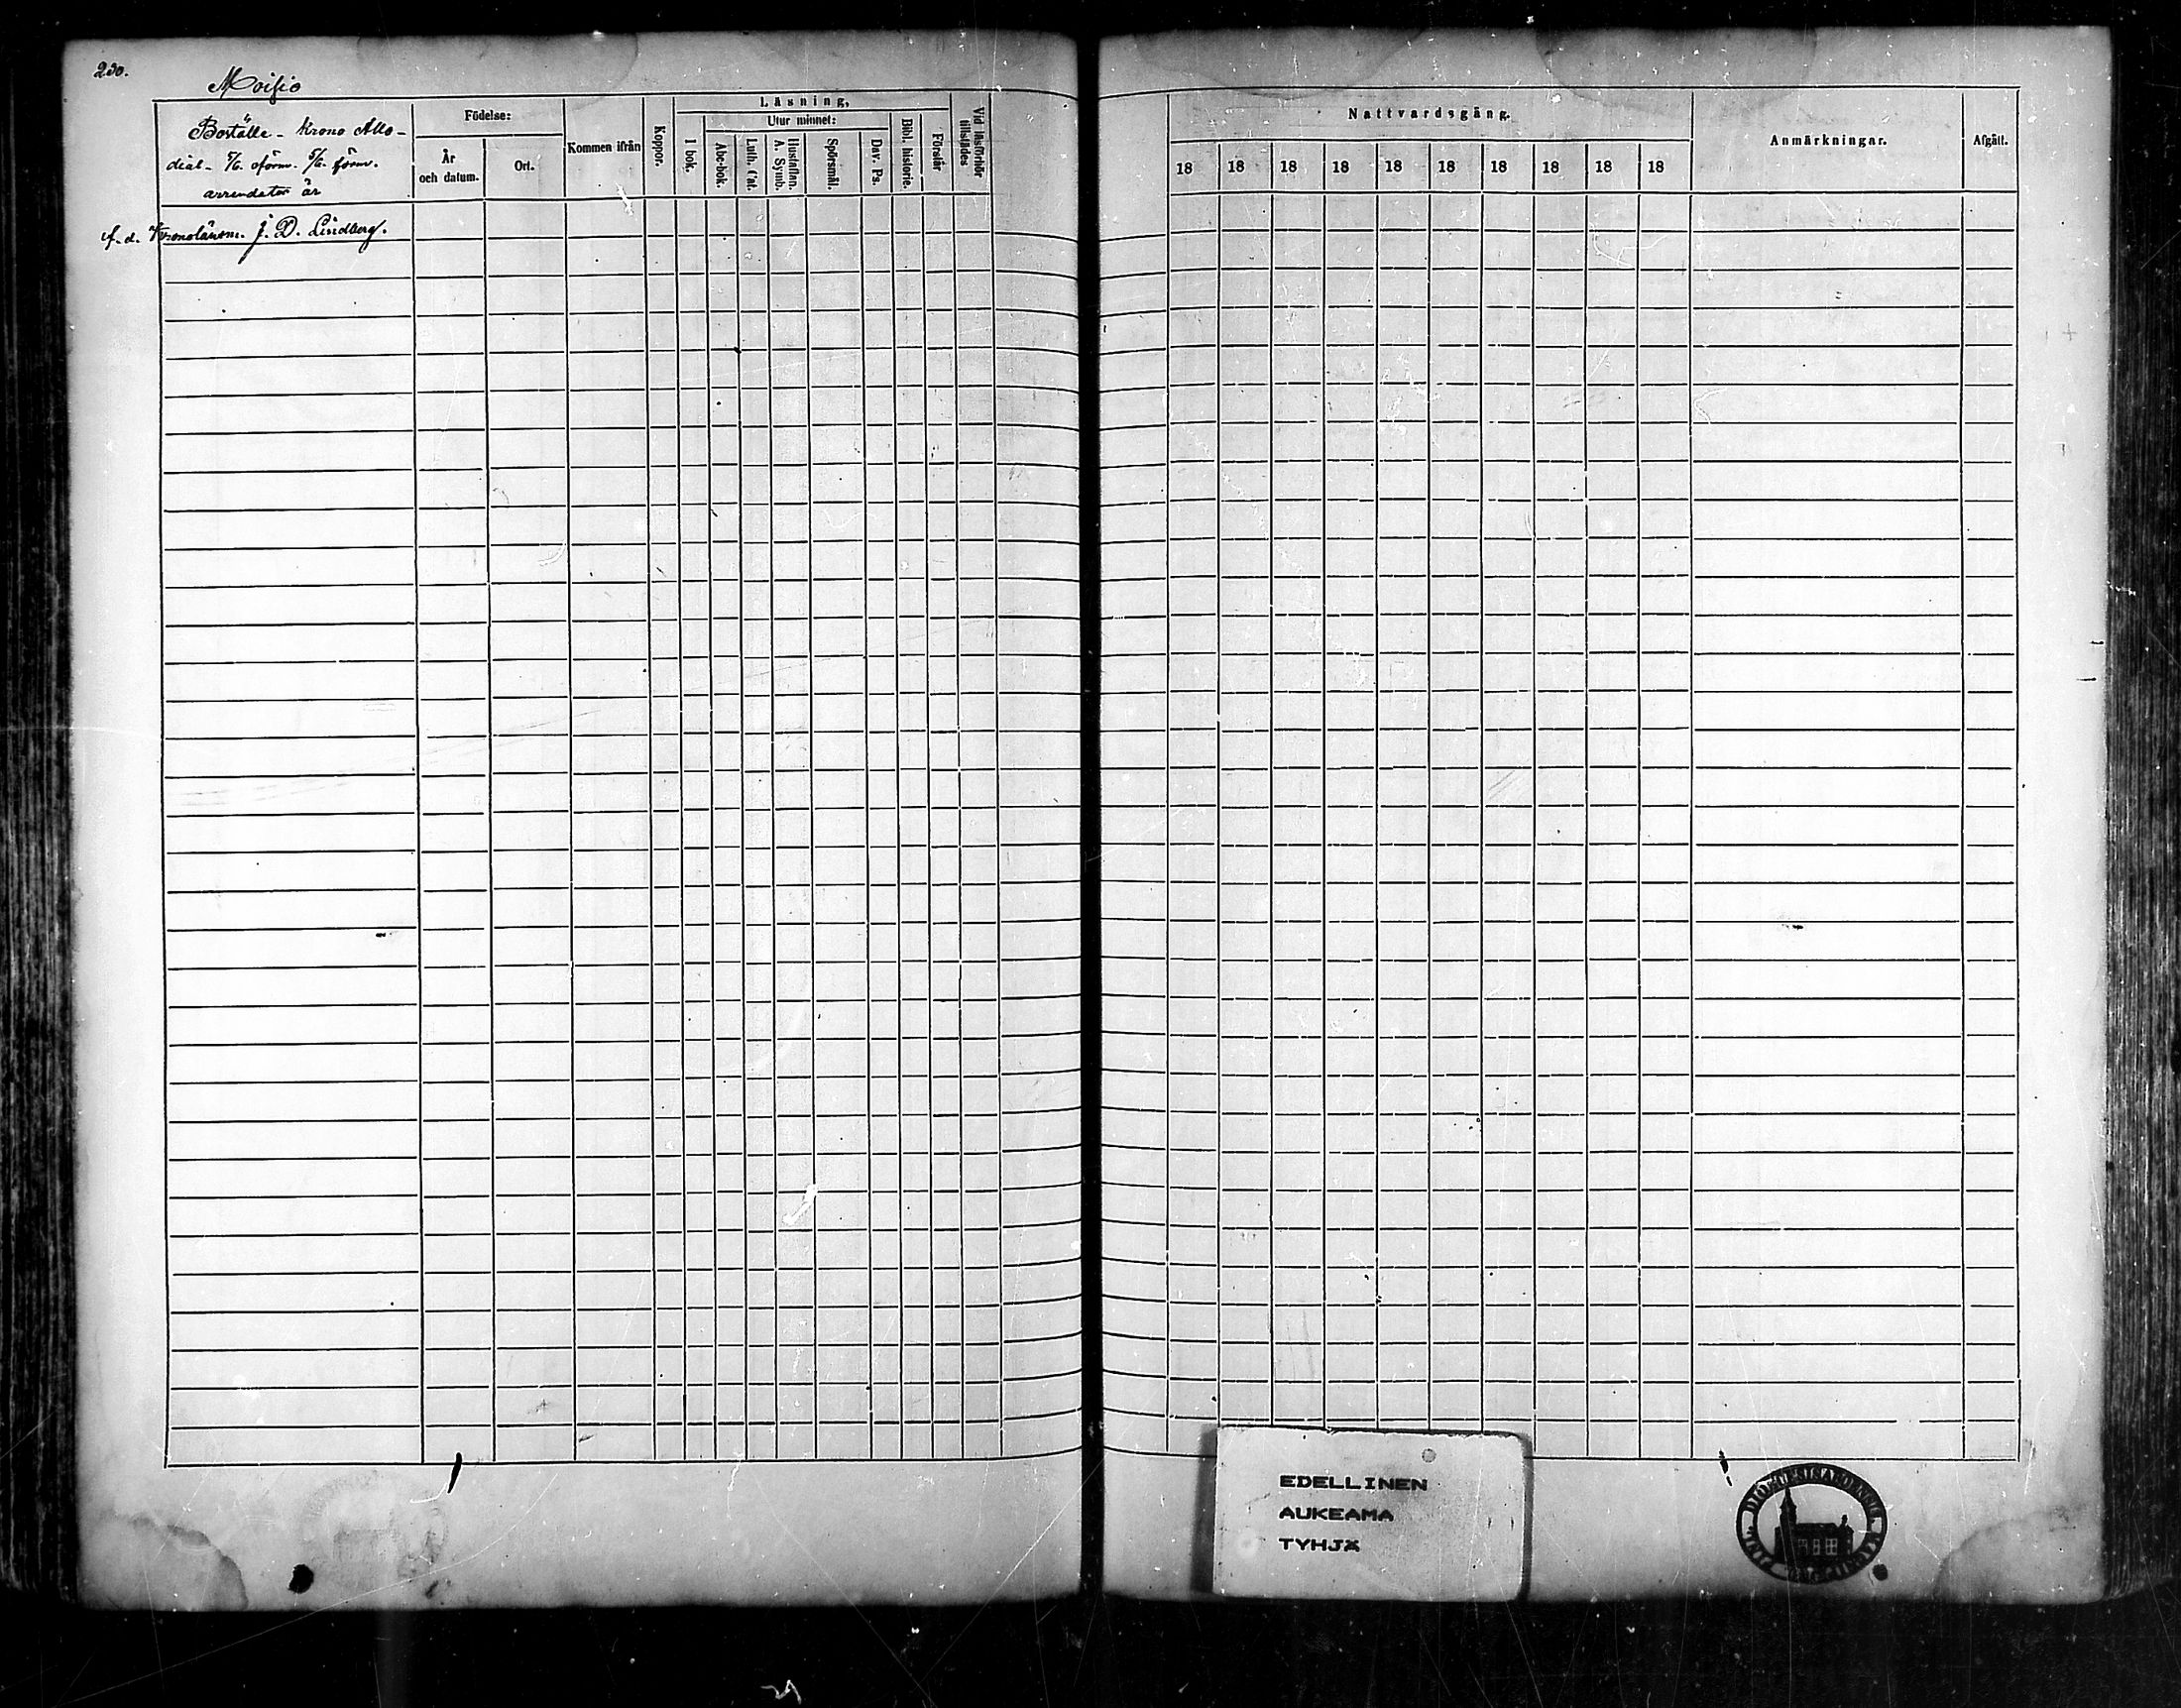 230.
Moisio
Boställe - Krono Allo-
dial - 5/6. oförm. 5/6. förm.
arrendator är
f. d. Kronolänsm. J. D. Lindberg.
Födelse:
År
och datum.
Ort.
Kommen ifrån
Koppor.
Läsning,
Utur minnet:
I bok.
Abc-bok.
Luth. Cat.
Hustaflan.
A. Symb.
Spörsmål.
Dav. Ps.
Bibl. historie.
Förstår
Vid läsförhör
tillstädes
Nattvardsgång.
18 18 18 18 18 18 18 18 18 18
Anmärkningar.
Afgått.
EDELLINEN
AUKEAMA
TYHJÄ